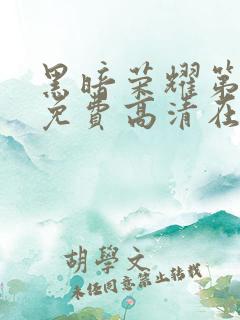 黑暗荣耀第
免费高清在
胡學文
未经同意禁止转载